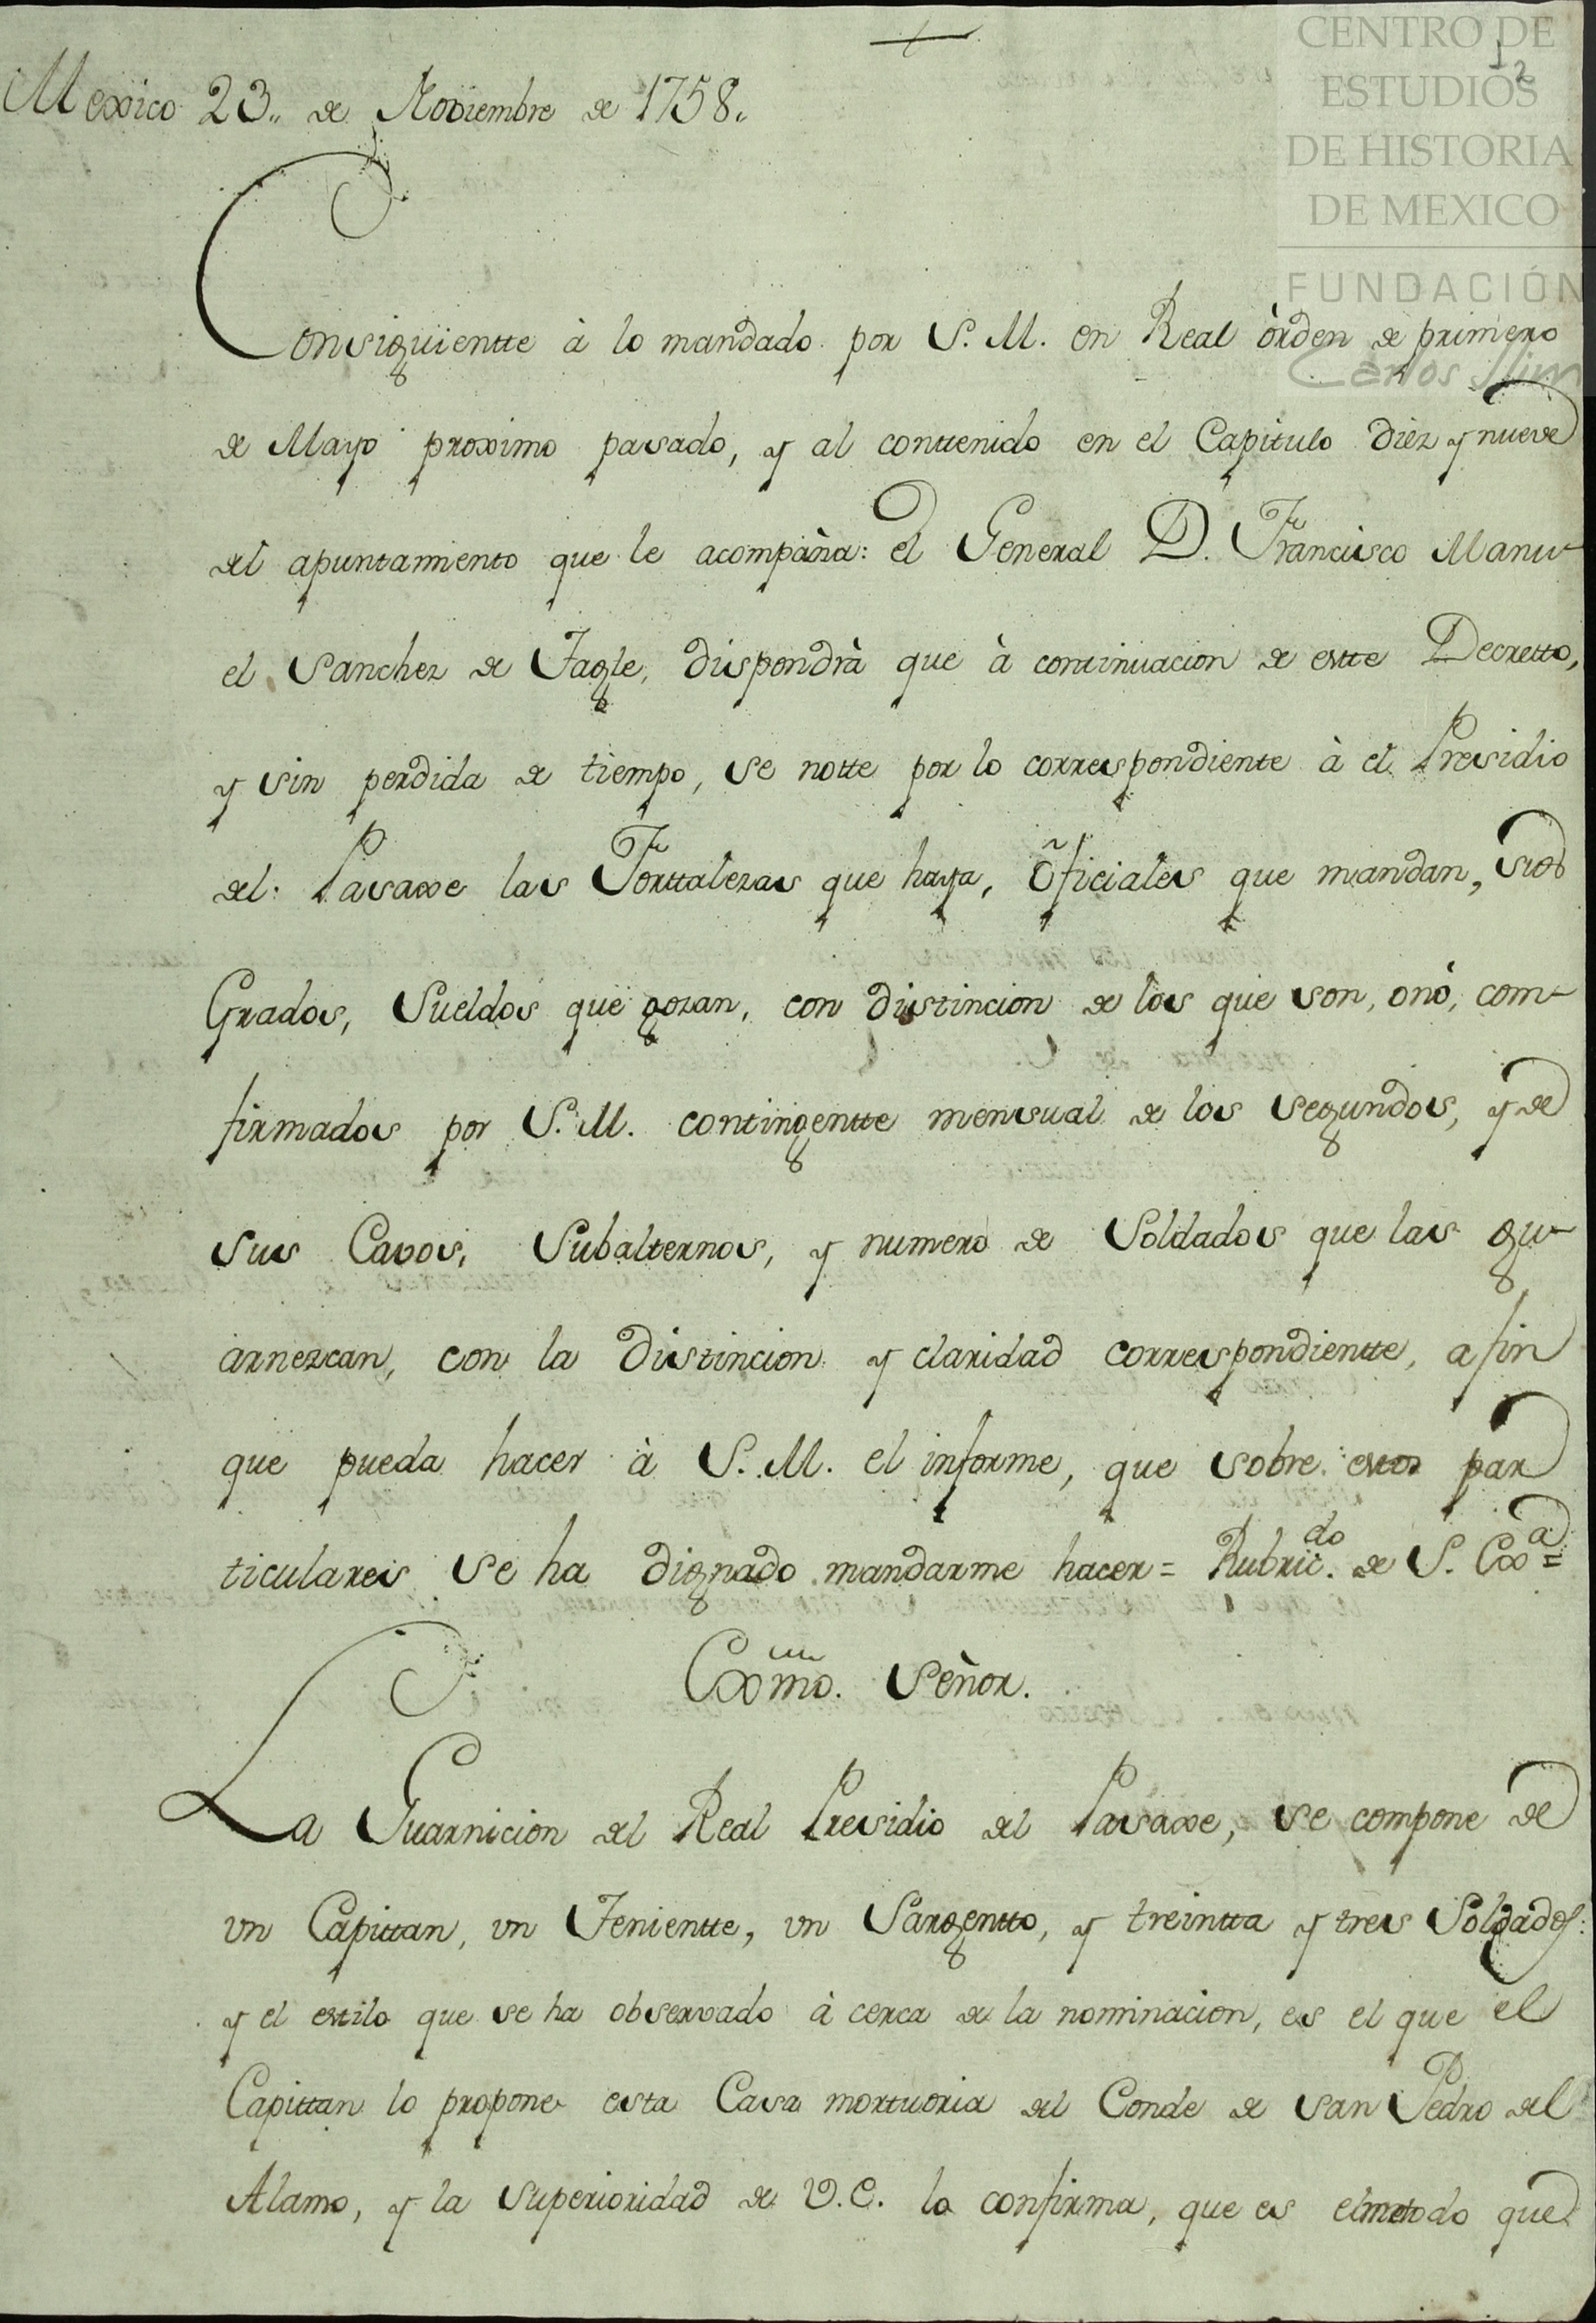 CENTRO DE
ESTUDIOS
DE HISTORIA
DE MEXICO
FUNDACIÓN
Carlos Slim
12
Mexico 23,, de Noviembre de 1758.
Consiguientte à lo mandado por S. M. en Real òrden de primero
de Mayo proximo pasado, y al conttenido en el Capitulo diez y nueve
del apuntamiento que le acompàña: el General D. Francisco Manu-
el Sanchez de Tagle, dispondrà que à continuacion de estte Decretto,
y sin perdida de tiempo, se notte por lo correspondiente à el Presidio
del Pasaxe las Forttalezas que haya, Oficiales que mandan, sus
Grados, Sueldos que gozan, con distincion de los que son, onò, com-
firmados por S. M. contingentte mensual de los segundos, y de
sus Cavos, Subalternos, y numero de Soldados que las gu-
arnezcan, con la distincion y claridad correspondientte, afin
que pueda hacer à S. M. el informe, que sobre estos par
ticulares se ha dignado mandarme hacer = Rubric.do de S. Exa=
Exmo. Señor.
La Guarnicion del Real Presidio del Pasaxe, se compone de
vn Capittan, vn Tenientte, vn Sargentto, y treintta y tres Soldados:
y el estilo que se ha observado à cerca de la nominacion, es el que el
Capittan lo propone esta Casa mortuoria del Conde de San Pedro del
Alamo, y la superioridad de V. E. lo confirma, que es elmetodo que